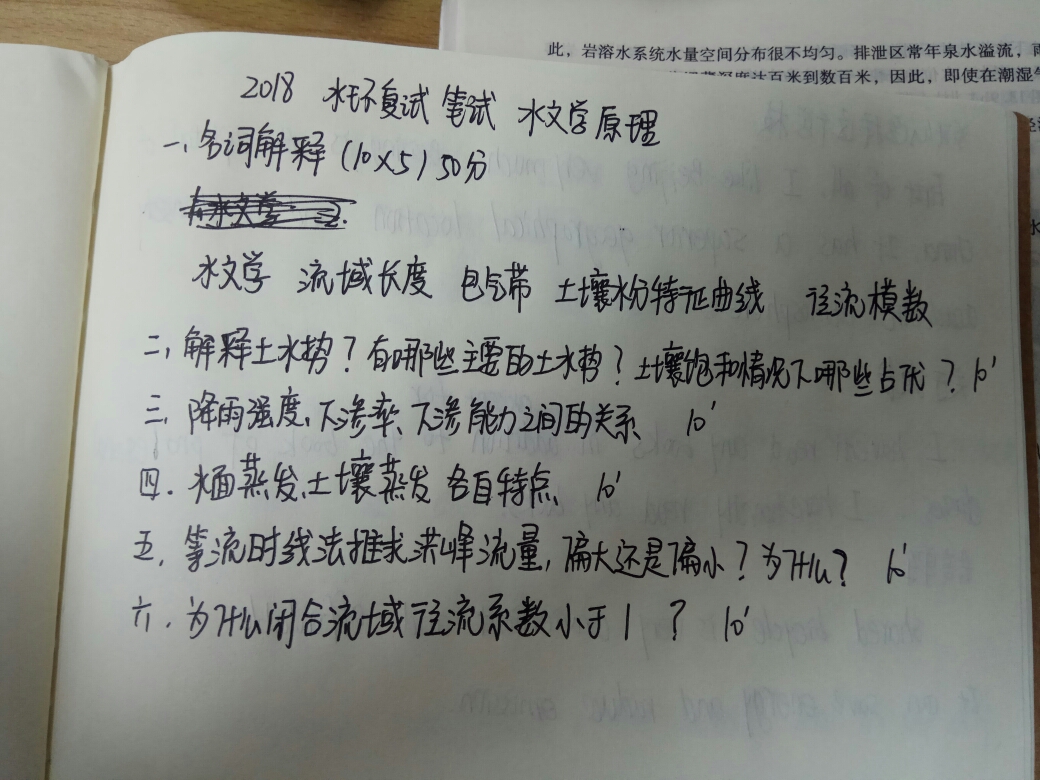 此，岩溶水系统水量空间分布很不均匀。排泄区常年泉水溢流，雨
度达百米到数百米，因此，即使在潮湿气
2018 水环复试 笔试 水文学原理
一、名词解释 (10×5) 50分
水文学 流域长度 包气带 土壤水份特征曲线 径流模数
二、解释土水势？有哪些主要的土水势？土壤饱和情况下哪些占优？10'
三、降雨强度、下渗率、下渗能力之间的关系 10'
四、水面蒸发、土壤蒸发 各自特点 10'
五、等流时线法推求洪峰流量，偏大还是偏小？为什么？ 10'
六、为什么闭合流域径流系数小于1？ 10'